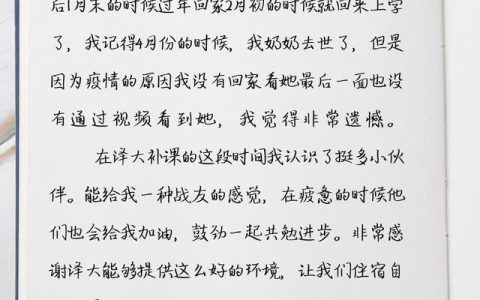 后1月末的时候过年回家2月初的时候就回来上学
了，我记得4月份的时候，我奶奶去世了，但是
因为疫情的原因我没有回家看她最后一面也没
有通过视频看到她，我觉得非常遗憾。
在泽大补课的这段时间我认识了挺多小伙
伴。能给我一种战友的感觉，在疲惫的时候他
们也会给我加油，鼓劲一起共勉进步。非常感
谢泽大能够提供这么好的环境，让我们住宿自